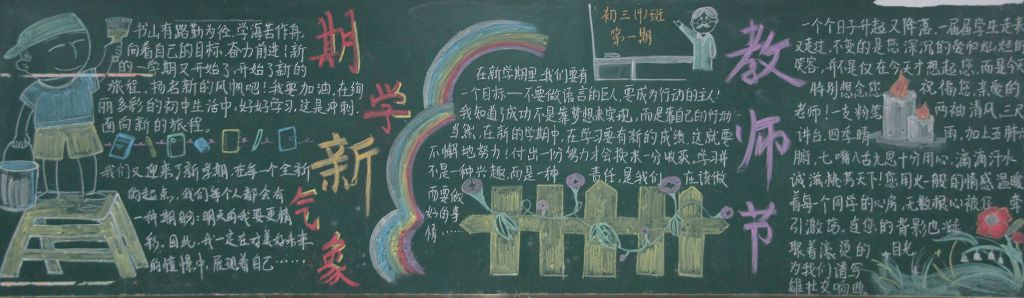 书山有路勤为径,学海苦作舟,
向着自己的目标,奋力前进!新
的一学期又开始了,开始了新的
旅程,扬名新的风帆吧!我要加油,在绚
丽多彩的初中生活中,好好学习,这是冲刺,
面向新的旅程。
我们又迎来了新学期,在每个全新
的起点,我们每个人都会有
一种期盼:明天的我要更精
彩,因此,我一定在对美好未来
的憧憬中,展现着自己……
新学期
新气象
初三(1)班
第一期
在新学期里,我们要有
一个目标——不要做语言的巨人,要成为行动的主人!
我知道了成功不是靠梦想来实现,而是靠自己的行动
当然,在新的学期中,在学习要有新的成绩,这就要
不懈地努力!付出一份努力才会换来一份收获,学习并
不是一种兴趣,而是一种责任,是我们应该做
而要做
好的事
情……
教师节
一个个日子升起又降落,一届届学生走来
又走过,不变的是您深沉的爱和灿烂的
笑容,并不是仅在今天才想起您,而是今天
特别想念您 祝福您,亲爱的
老师!一支粉笔 两袖清风,三尺
讲台,四季晴 雨,加上五脏六
腑,七嘴八舌九思十分用心,滴滴汗水
诚滋桃芳天下!您用火一般的情感温暖
着每个同学的心房,无数根心被您 牵
引激荡,连您的背影也凝
聚着滚烫的 目光
为我们谱写
雄壮交响曲